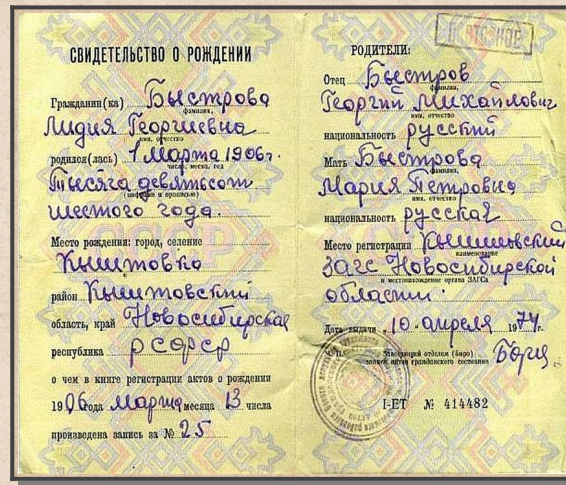 СВИДЕТЕЛЬСТВО О РОЖДЕНИИ
Гражданин(ка) Быстрова
фамилия,
Лидия Георгиевна
имя, отчество
родился(лась) 1 Марта 1906г.
число, месяц, год
Тысяча девятьсот
(цифрами и прописью)
шестого года.
Место рождения: город, селение
Кыштовка
район Кыштовский
область, край Новосибирская
республика РСФСР
о чем в книге регистрации актов о рождении
1906 года Марта месяца 13 числа
произведена запись за № 25
РОДИТЕЛИ:
Отец Быстров
фамилия,
Георгий Михайлович
имя, отчество
национальность русский
Мать Быстрова
фамилия,
Мария Петровна
имя, отчество
национальность русская
Место регистрации Кыштовский
наименование
ЗАГС Новосибирской
и местонахождение органа ЗАГСа
области.
Дата выдачи „10" апреля 1974 г.
М.П. Заведующий отделом (бюро)
записи актов гражданского состояния
I-ЕТ № 414482